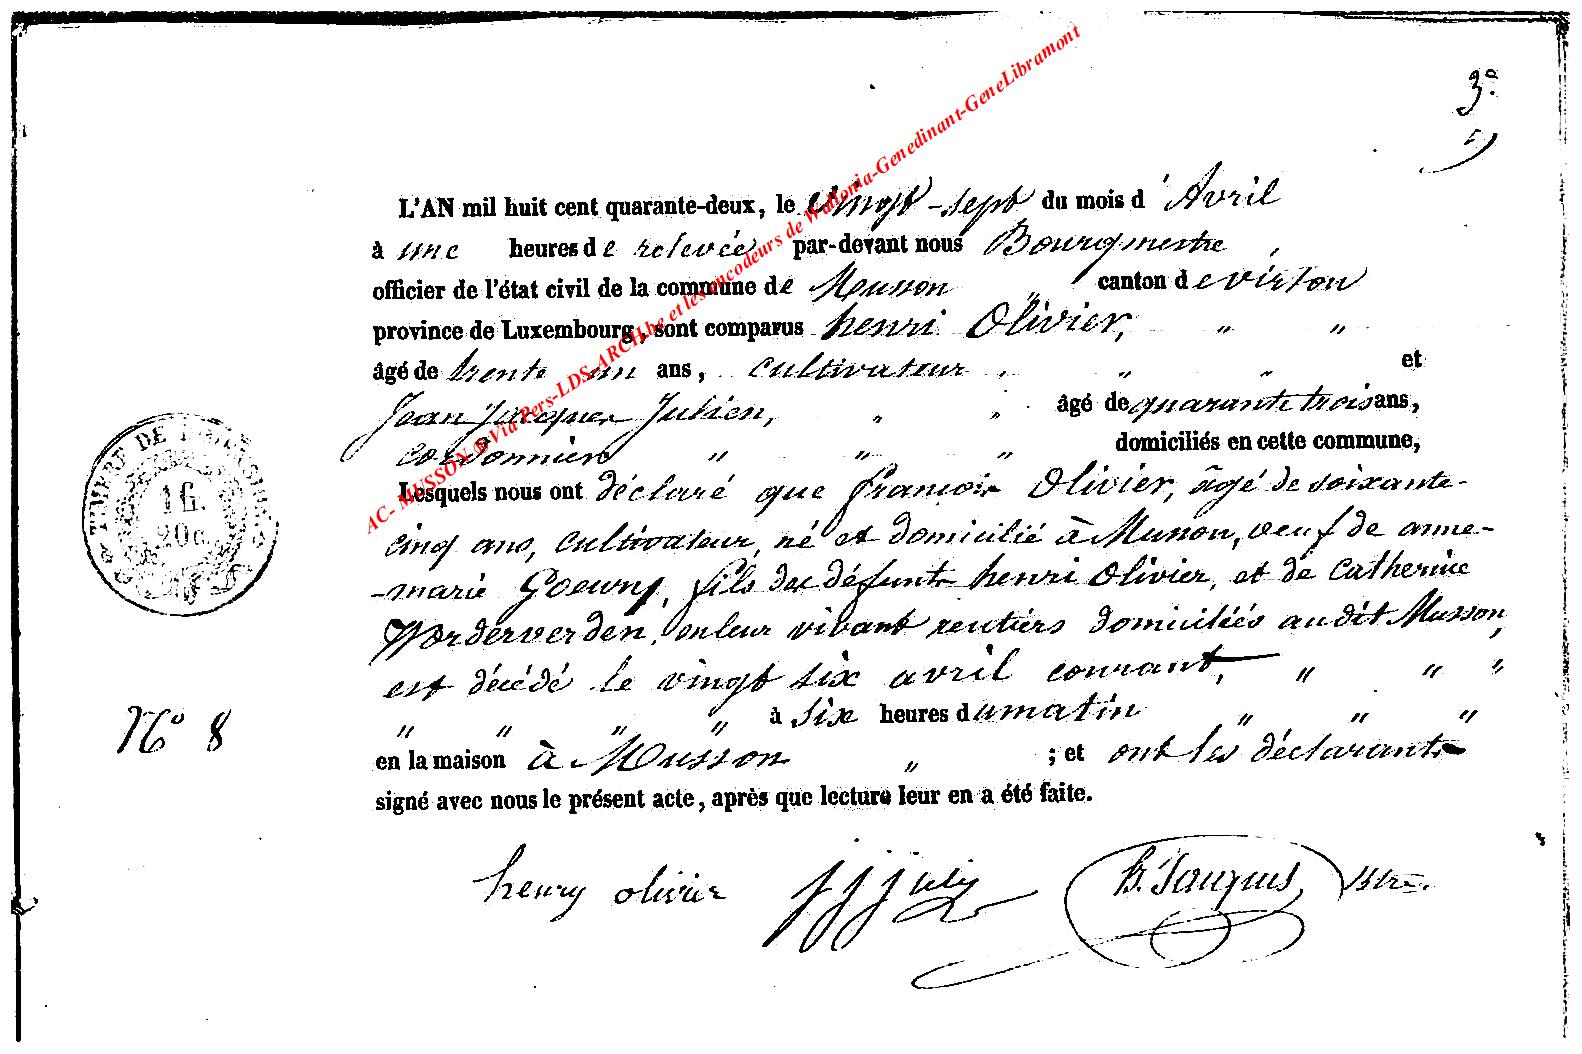 3º
L'AN mil huit cent quarante-deux, le Vingt-sept du mois d'Avril
à une heures de relevée par-devant nous Bourgmestre,
officier de l'état civil de la commune de Musson " canton de virton
province de Luxembourg, sont comparus henri Olivier, " "
âgé de trente un ans, cultivateur, " " et
Jean Jacques Julien, " " âgé de quarante trois ans,
cordonnier " " " domiciliés en cette commune,
Lesquels nous ont déclaré que françois Olivier, âgé de soixante-
cinq ans, cultivateur, né et domicilié à Musson, veuf de anne-
-marie Goeury, fils des défunts henri Olivier, et de Catherine
Worderverden, en leur vivant rentiers domiciliés audit Musson,
est décédé le vingt six avril courant, " " "
" " " " à six heures du matin " " "
en la maison à Musson " ; et ont les déclarants
signé avec nous le présent acte, après que lecture leur en a été faite.
Nº 8
TIMBRE DE
1 fl.
20 c.
henry olivier
AC- MUSSON © Via Pers-LDS-ARCH.be et les encodeurs de Wallonia-Genedinant-GeneLibramont